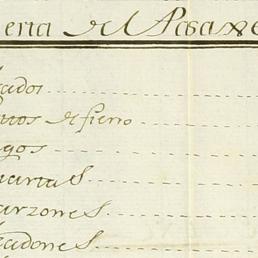 eria del Pasaxe
ados
de fierro
gos
quartas
arzones
cadones